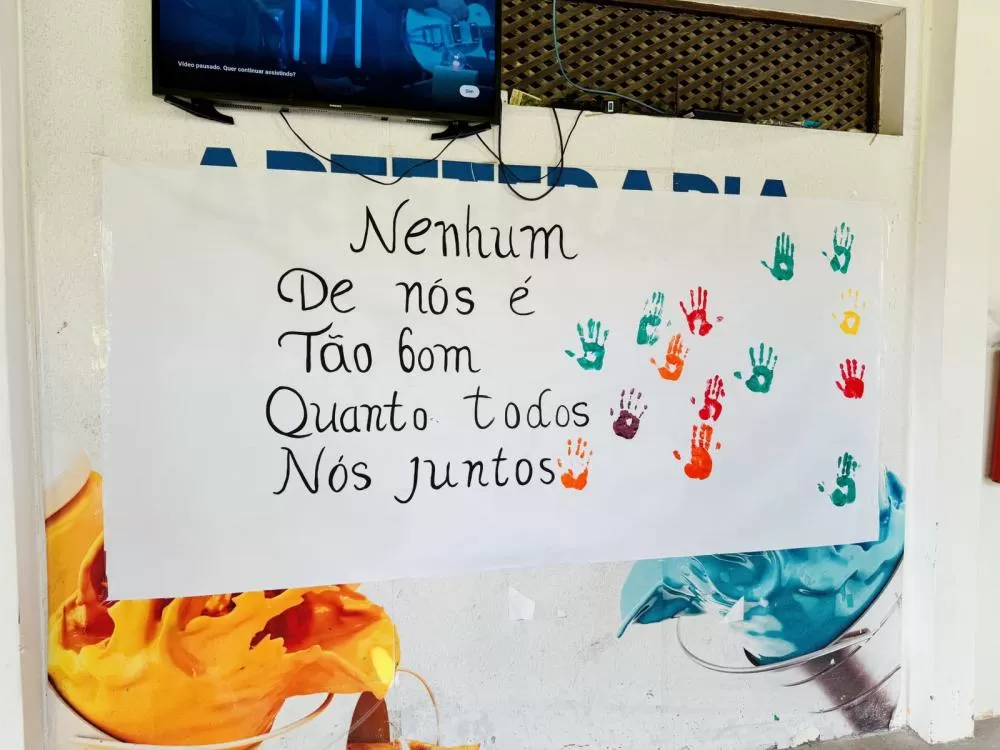 Vídeo pausado. Quer continuar assistindo?
Sim
Nenhum
De nós é
Tão bom
Quanto todos
Nós juntos